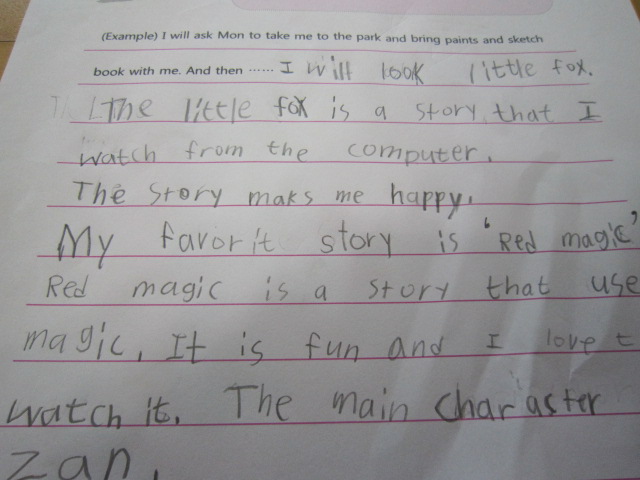 (Example) I will ask Mon to take me to the park and bring paints and sketch
book with me. And then ...... I will look little fox.
The little fox is a story that I
watch from the computer.
The story maks me happy.
My favorit story is 'Red magic'
Red magic is a story that use
magic. It is fun and I love t
watch it. The main charaster
zan.